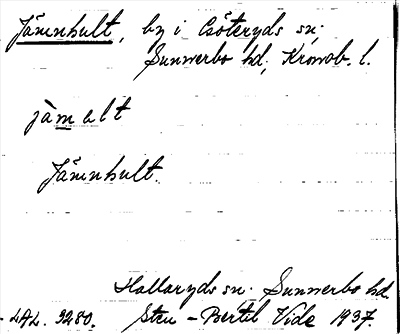 Jämnhult, by i Lsöteryds sn,
Sunnerbo hd, Kronob. l.
jàmalt
Jämnhult.
Hallaryds sn. Sunnerbo hd.
LAL. 9280. Sten-Bertil Vide 1937.